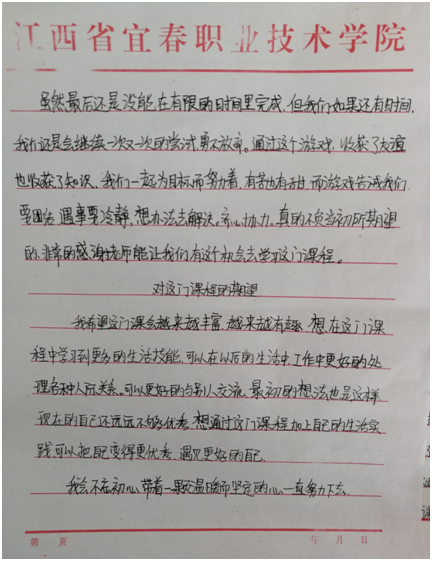 江西省宜春职业技术学院
虽然最后还是没能在有限的时间里完成,但我们如果还有时间,
我们还是会继续一次又一次的尝试,勇不放弃。通过这个游戏,收获了友谊
也收获了知识。我们一起为目标而努力着,有苦也有甜,而游戏告诫我们
要团结,遇事要冷静,想办法去解决。齐心协力,真的不负当初所期望
的,非常的感谢老师能让我们有这个机会去学习这门课程。
对这门课程的期望
我希望这门课会越来越丰富,越来越有趣,想在这门课
程中学习到更多的生活技能,可以在以后的生活中,工作中更好的处
理各种人际关系。可以更好的与别人交流,最初的想法也是这样
现在的自己还远远不够优秀,想通过这门课程加上自己的生活实
践可以把自己变得更优秀,遇见更好的自己。
我会不忘初心,带着一颗温暖而坚定的心一直努力下去。
第 页
年 月 日